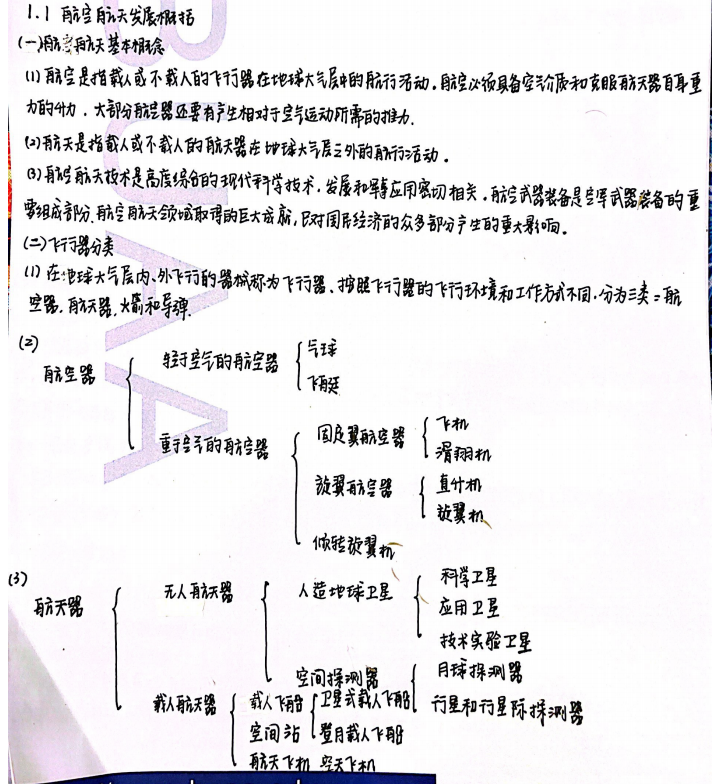 1.1 航空航天发展概括
(一)航空航天基本概念
(1) 航空是指载人或不载人的飞行器在地球大气层中的航行活动。航空必须具备空气介质和克服航天器自身重
力的升力。大部分航空器还要有产生相对于空气运动所需的推力.
(2) 航天是指载人或不载人的航天器在地球大气层之外的航行活动。
(3) 航空航天技术是高度综合的现代科学技术,发展和军事应用密切相关。航空武器装备是空军武器装备的重
要组成部分.航空航天领域取得的巨大成就,已对国民经济的众多部分产生的重大影响。
(二)飞行器分类
(1) 在地球大气层内、外飞行的器械称为飞行器、按照飞行器的飞行环境和工作方式不同,分为三类:航
空器,航天器,火箭和导弹.
(2)
航空器
轻于空气的航空器
气球
飞艇
重于空气的航空器
固定翼航空器
飞机
滑翔机
旋翼航空器
直升机
旋翼机
倾转旋翼机
(3)
航天器
无人航天器
人造地球卫星
科学卫星
应用卫星
技术实验卫星
空间探测器
月球探测器
行星和行星际探测器
载人航天器
载人飞船
卫星式载人飞船
登月载人飞船
空间站
航天飞机 空天飞机
BUAA